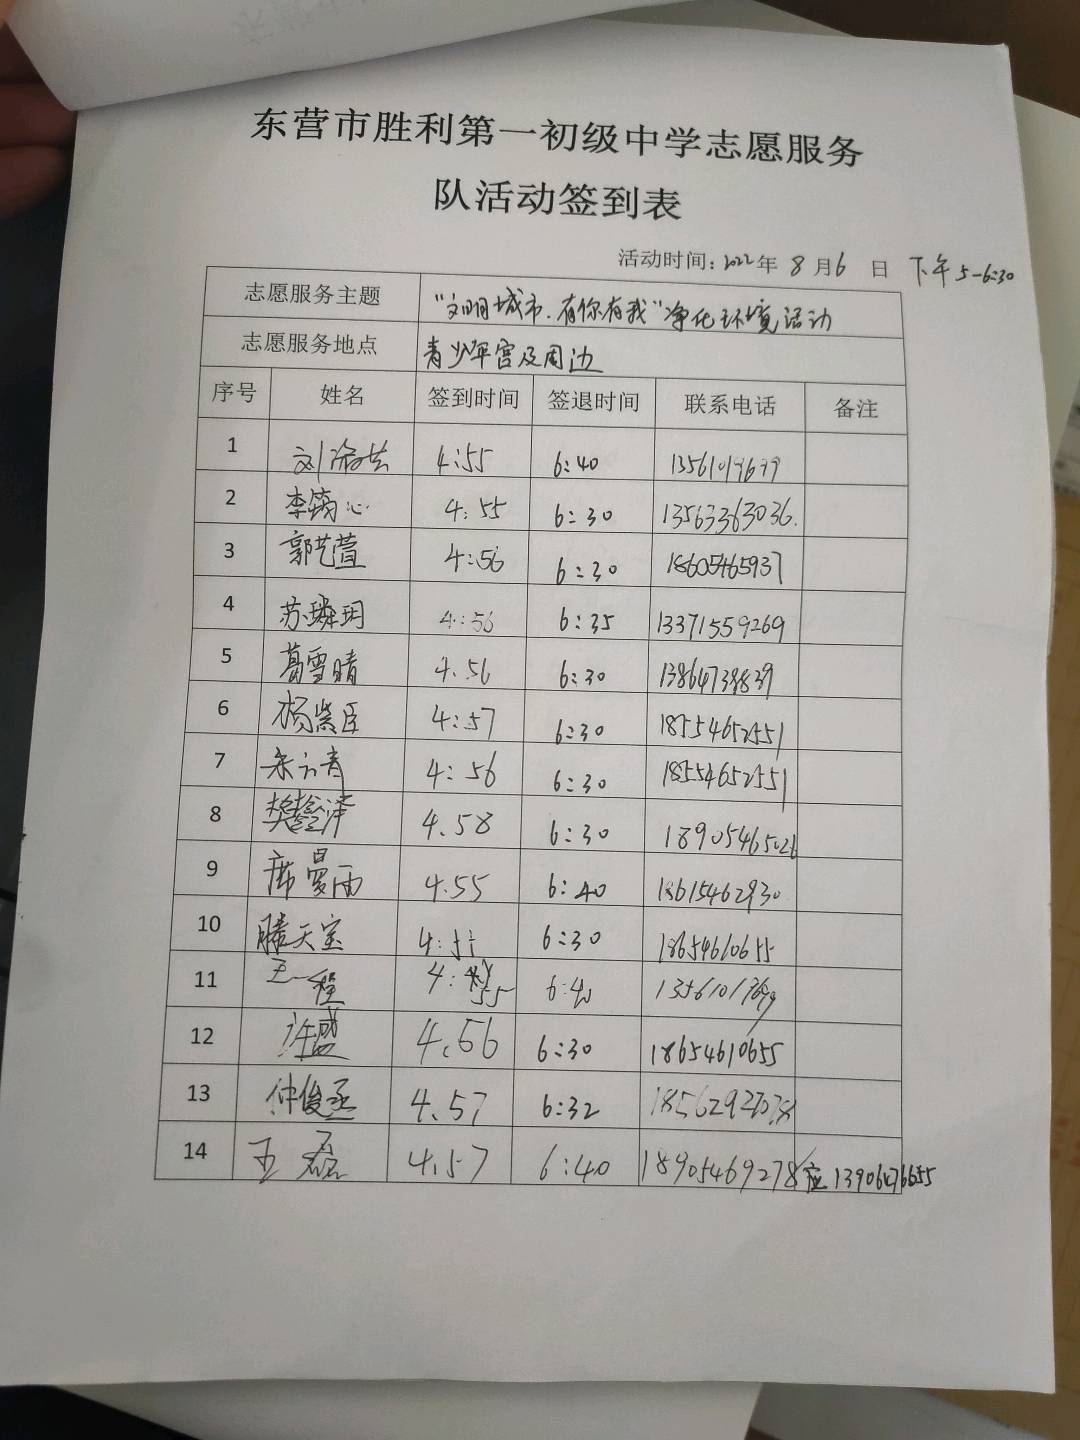 东营市胜利第一初级中学志愿服务
队活动签到表
活动时间：2022年 8月6日 下午5-6:30
志愿服务主题 “文明城市.有你有我”净化环境活动
志愿服务地点 青少年宫及周边
序号 姓名 签到时间 签退时间 联系电话 备注
1 4:55 6:40
2 李筠心 4:55 6:30 13563363036.
3 郭艺萱 4:56 6:30 18605465937
4 苏璘玥 4:56 6:35 13371559269
5 葛雪晴 4.56 6:30 13864738839
6 杨紫臣 4:57 6:30 18554652551
7 朱云青 4:56 6:30 18554652551
8 樊懿泽 4.58 6:30 18905465026
9 席曼雨 4.55 6:40 18615462930
10 滕天宝 6:30 18654610655
11 王一程 4:55 6:40
12 许盛 4.56 6:30 18654610655
13 仲俊丞 4.57 6:32
14 王磊 4.57 6:40 18905469278 应13906476655